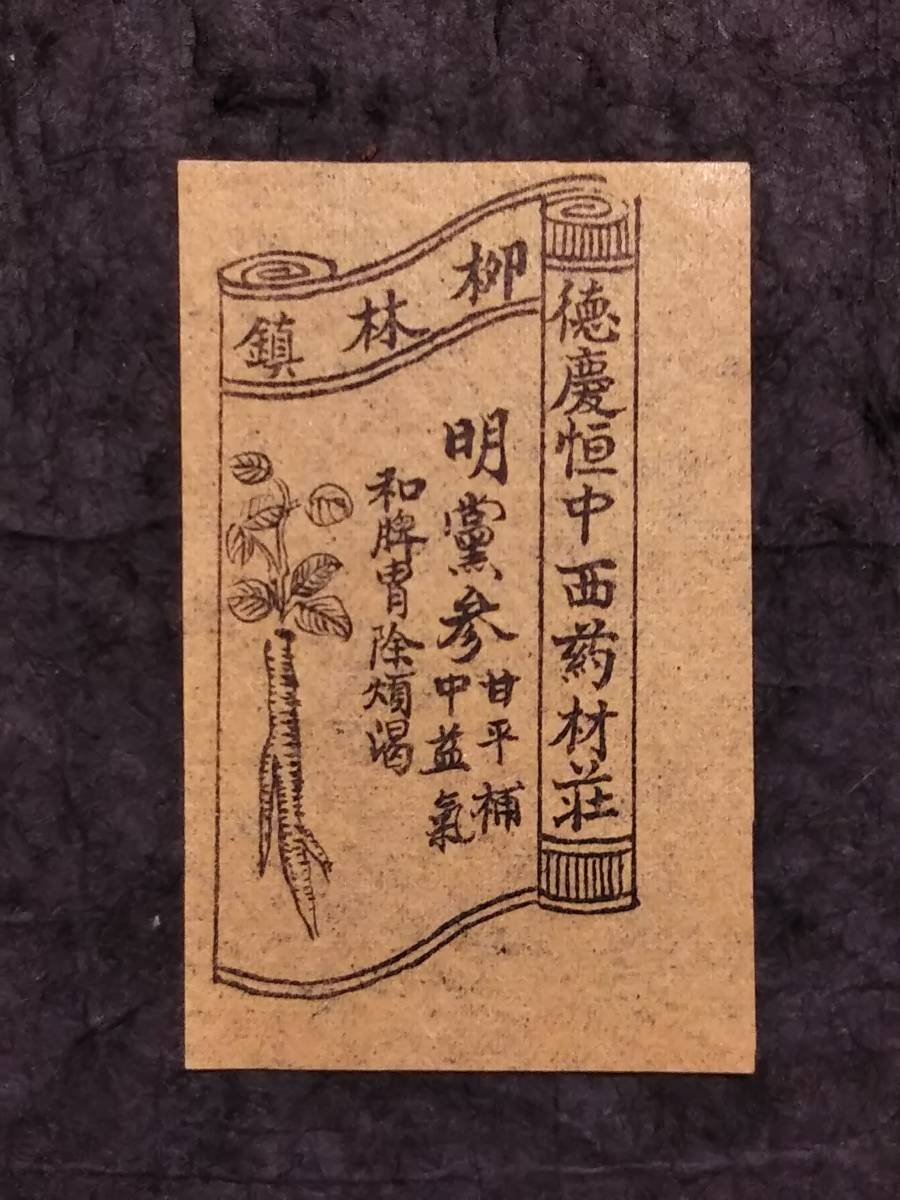 德慶恒中西药材莊
柳林鎮
明黨参
甘平補
中益氣
和脾胃除煩渴